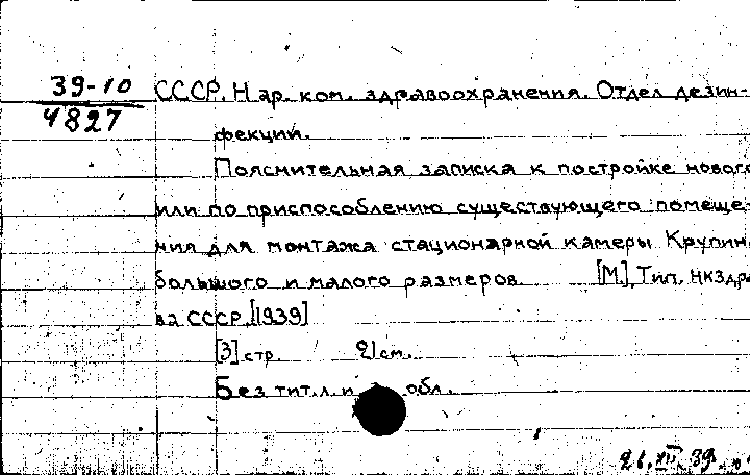 39-10
4827
СССР. Нар. ком. здравоохранения. Отдел дезин-
фекции.
Пояснительная записка к постройке нового
или по приспособлению существующего помеще-
ния для монтажа стационарной камеры Крупин
большого и малого размеров. [М.], Тип. НКЗдра
ва СССР, [1939]
[3] стр. 21 см.
Без тит. л. и обл.
26.XII.39.